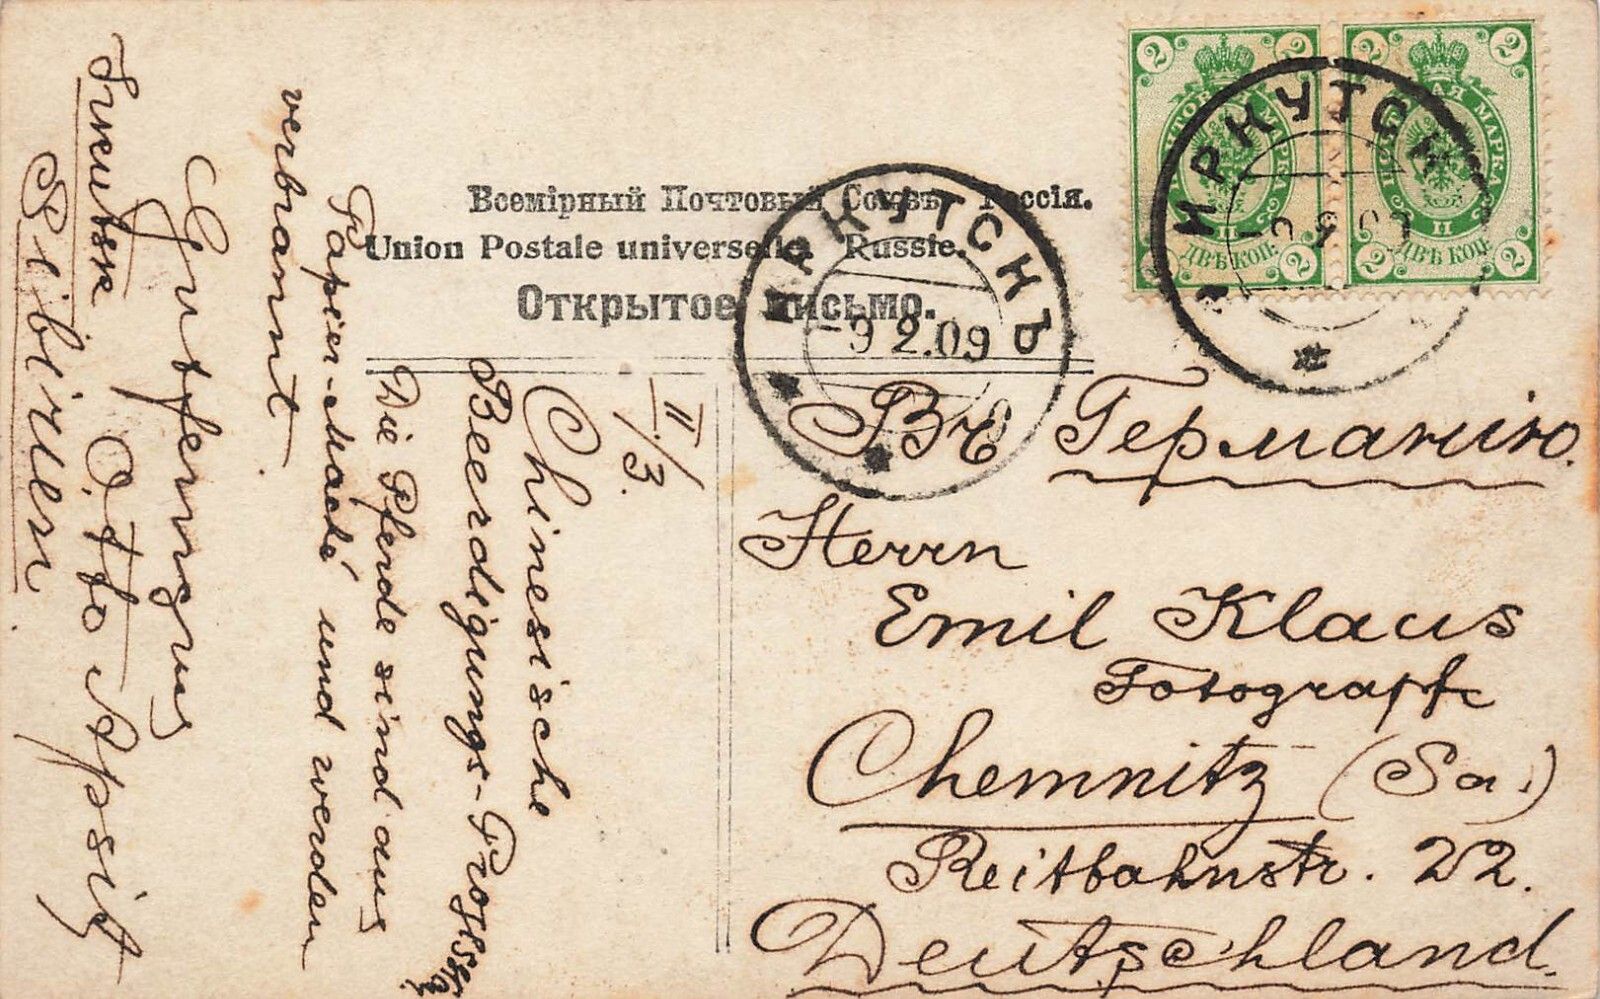 Всемірный Почтовый Союзъ. Россія.
Union Postale universelle. Russie.
Открытое письмо.
2 2
2 2
ПОЧТОВАЯ МАРКА
ДВѢ КОП.
2 2
2 2
ПОЧТОВАЯ МАРКА
ДВѢ КОП.
ИРКУТСКЪ
ИРКУТСКЪ
-9 2.09
Въ Германію.
Herrn
Emil Klaus
Fotograph
Chemnitz (Sa.)
Reitbahnstr. 22.
Deutschland.
II/3.
Chinesische
Beerdigungs-
Die Pferde sind aus
Papier-Maché und werden
verbrannt
Otto Apsit
Sibirien.